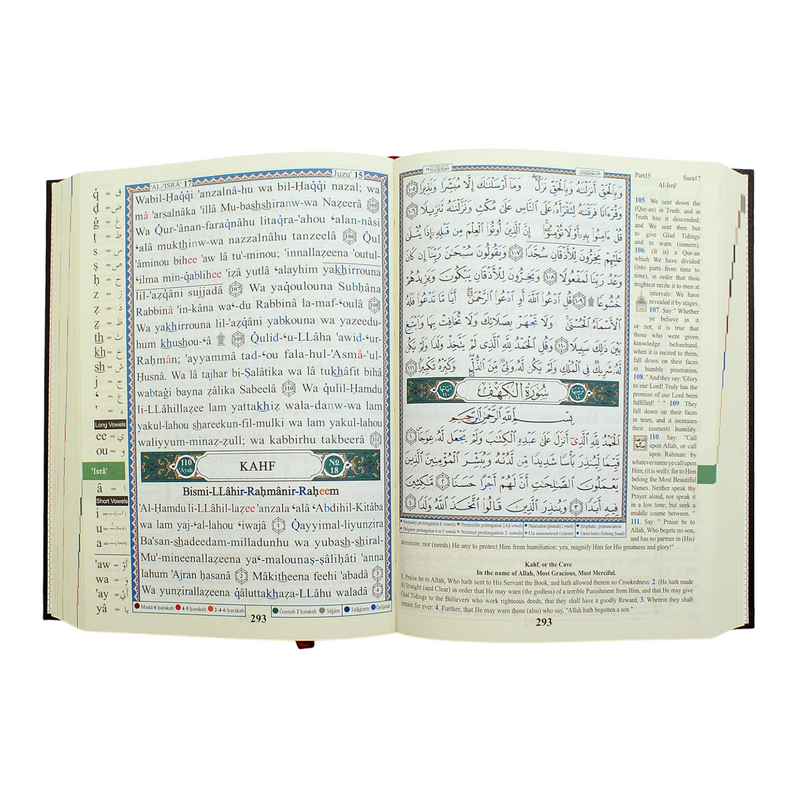 'AL-'ISRÂ' 17
Juzu' 15
Wabil-Ḥaqqi 'anzalnâ-hu wa bil-Ḥaqqi nazal; wa
mâ 'arsalnâka 'illâ Mu-bashshiranw-wa Nazeerâ
Wa Qur-'ânan-faraqnâhu litaqra-'ahou 'alan-nâsi
'alâ mukthinw-wa nazzalnâhu tanzeelâ Qul
'âminou bihee 'aw lâ tu'-minou; 'innallazeena 'outul-
'ilma min-qablihee 'izâ yutlâ 'alayhim yakhirrouna
lil-'azqâni sujjadâ Wa yaqoulouna Subḥâna
Rabbinâ 'in-kâna wa'-du Rabbinâ la-maf-'oulâ
Wa yakhirrouna lil-'azqâni yabkouna wa yazeedu-
hum khushou-'â Qulid-'u-LLâha 'awid-'ur-
Raḥmân; 'ayyammâ tad-'ou fala-hul-'Asmâ-'ul-
Ḥusnâ. Wa lâ tajhar bi-Ṣalâtika wa lâ tukhâfit bihâ
wabtaġi bayna zâlika Sabeelâ 110 Wa qulil-Ḥamdu
li-LLâhillazee lam yattakhiz wala-danw-wa lam
yakul-lahou shareekun-fil-mulki wa lam yakul-lahou
waliyyum-minaz-zull; wa kabbirhu takbeerâ
110 Âyah
KAHF
No 18
Bismi-LLâhir-Raḥmânir-Raḥeem
'Al-Ḥamdu li-LLâhil-lazee 'anzala 'alâ 'Abdihil-Kitâba
wa lam yaj-'al-lahou 'iwajâ Qayyimal-liyunzira
Ba'san-shadeedam-milladunhu wa yubash-shiral-
Mu'-mineenallazeena ya'-malounaṣ-ṣâliḥâti 'anna
lahum 'Ajran ḥasanâ Mâkitheena feehi 'abadâ
Wa yunziralllazeena qâluttakhaza-LLâhu waladâ
Long Vowels
'Isrâ'
Short Vowels
293
وَبِالْحَقِّ أَنزَلْنَاهُ وَبِالْحَقِّ نَزَلَ وَمَا أَرْسَلْنَاكَ إِلَّا مُبَشِّرًا وَنَذِيرًا
وَقُرْآنًا فَرَقْنَاهُ لِتَقْرَأَهُ عَلَى النَّاسِ عَلَى مُكْثٍ وَنَزَّلْنَاهُ تَنزِيلًا
قُلْ آمِنُوا بِهِ أَوْ لَا تُؤْمِنُوا إِنَّ الَّذِينَ أُوتُوا الْعِلْمَ مِن قَبْلِهِ إِذَا يُتْلَى
عَلَيْهِمْ يَخِرُّونَ لِلْأَذْقَانِ سُجَّدًا وَيَقُولُونَ سُبْحَانَ رَبِّنَا إِن كَانَ
وَعْدُ رَبِّنَا لَمَفْعُولًا وَيَخِرُّونَ لِلْأَذْقَانِ يَبْكُونَ وَيَزِيدُهُمْ
خُشُوعًا قُلِ ادْعُوا اللَّهَ أَوِ ادْعُوا الرَّحْمَنَ أَيًّا مَّا تَدْعُوا فَلَهُ
الْأَسْمَاءُ الْحُسْنَى وَلَا تَجْهَرْ بِصَلَاتِكَ وَلَا تُخَافِتْ بِهَا وَابْتَغِ
بَيْنَ ذَلِكَ سَبِيلًا وَقُلِ الْحَمْدُ لِلَّهِ الَّذِي لَمْ يَتَّخِذْ وَلَدًا وَلَمْ يَكُن لَّهُ
شَرِيكٌ فِي الْمُلْكِ وَلَمْ يَكُن لَّهُ وَلِيٌّ مِّنَ الذُّلِّ وَكَبِّرْهُ تَكْبِيرًا
سُورَةُ الْكَهْفِ
بِسْمِ اللَّهِ الرَّحْمَنِ الرَّحِيمِ
الْحَمْدُ لِلَّهِ الَّذِي أَنزَلَ عَلَى عَبْدِهِ الْكِتَابَ وَلَمْ يَجْعَل لَّهُ عِوَجًا
قَيِّمًا لِّيُنذِرَ بَأْسًا شَدِيدًا مِّن لَّدُنْهُ وَيُبَشِّرَ الْمُؤْمِنِينَ الَّذِينَ
يَعْمَلُونَ الصَّالِحَاتِ أَنَّ لَهُمْ أَجْرًا حَسَنًا مَّاكِثِينَ
فِيهِ أَبَدًا وَيُنذِرَ الَّذِينَ قَالُوا اتَّخَذَ اللَّهُ وَلَدًا
Part15 Sura17
Al-Isrâ'
105. We sent down
(Qur-an) in Truth, and in
Truth has it descended:
and We sent thee but
to give Glad Tidings
and to warn (sinners).
106. (It is) a Qur-an
which We have divided
(into parts from time to
time), in order that thou
mightest recite it to men at
intervals: We have
revealed it by stages.
107. Say:" Whether
ye believe in it
or not, it is true that
those who were given
knowledge beforehand,
when it is recited to them,
fall down on their faces
in humble prostration,
108. "And they say: 'Glory
to our Lord! Truly has the
promise of our Lord been
fulfilled! ' " 109. They
fall down on their faces
in tears, and it increases
their (earnest) humility.
110. Say: "Call
upon Allah, or call
upon Rahman: by
whatever name ye call upon
Him, (it is well): for to Him
belong the Most Beautiful
Names. Neither speak thy
Prayer aloud, nor speak it
in a low tone, but seek a
middle course between. "
111. Say: " Praise be to
Allah, Who begets no son,
and has no partner in (His)
dominion: nor (needs) He any to protect Him from humiliation: yea, magnify Him for His greatness and glory!"
Kahf, or the Cave
In the name of Allah, Most Gracious, Most Merciful.
1. Praise be to Allah, Who hath sent to His Servant the Book, and hath allowed therein no Crookedness: 2. (He hath made
it) Straight (and Clear) in order that He may warn (the godless) of a terrible Punishment from Him, and that He may give
Glad Tidings to the Believers who work righteous deeds, that they shall have a goodly Reward, 3. Wherein they shall
remain for ever: 4. Further, that He may warn those (also) who say, "Allah hath begotten a son "
293